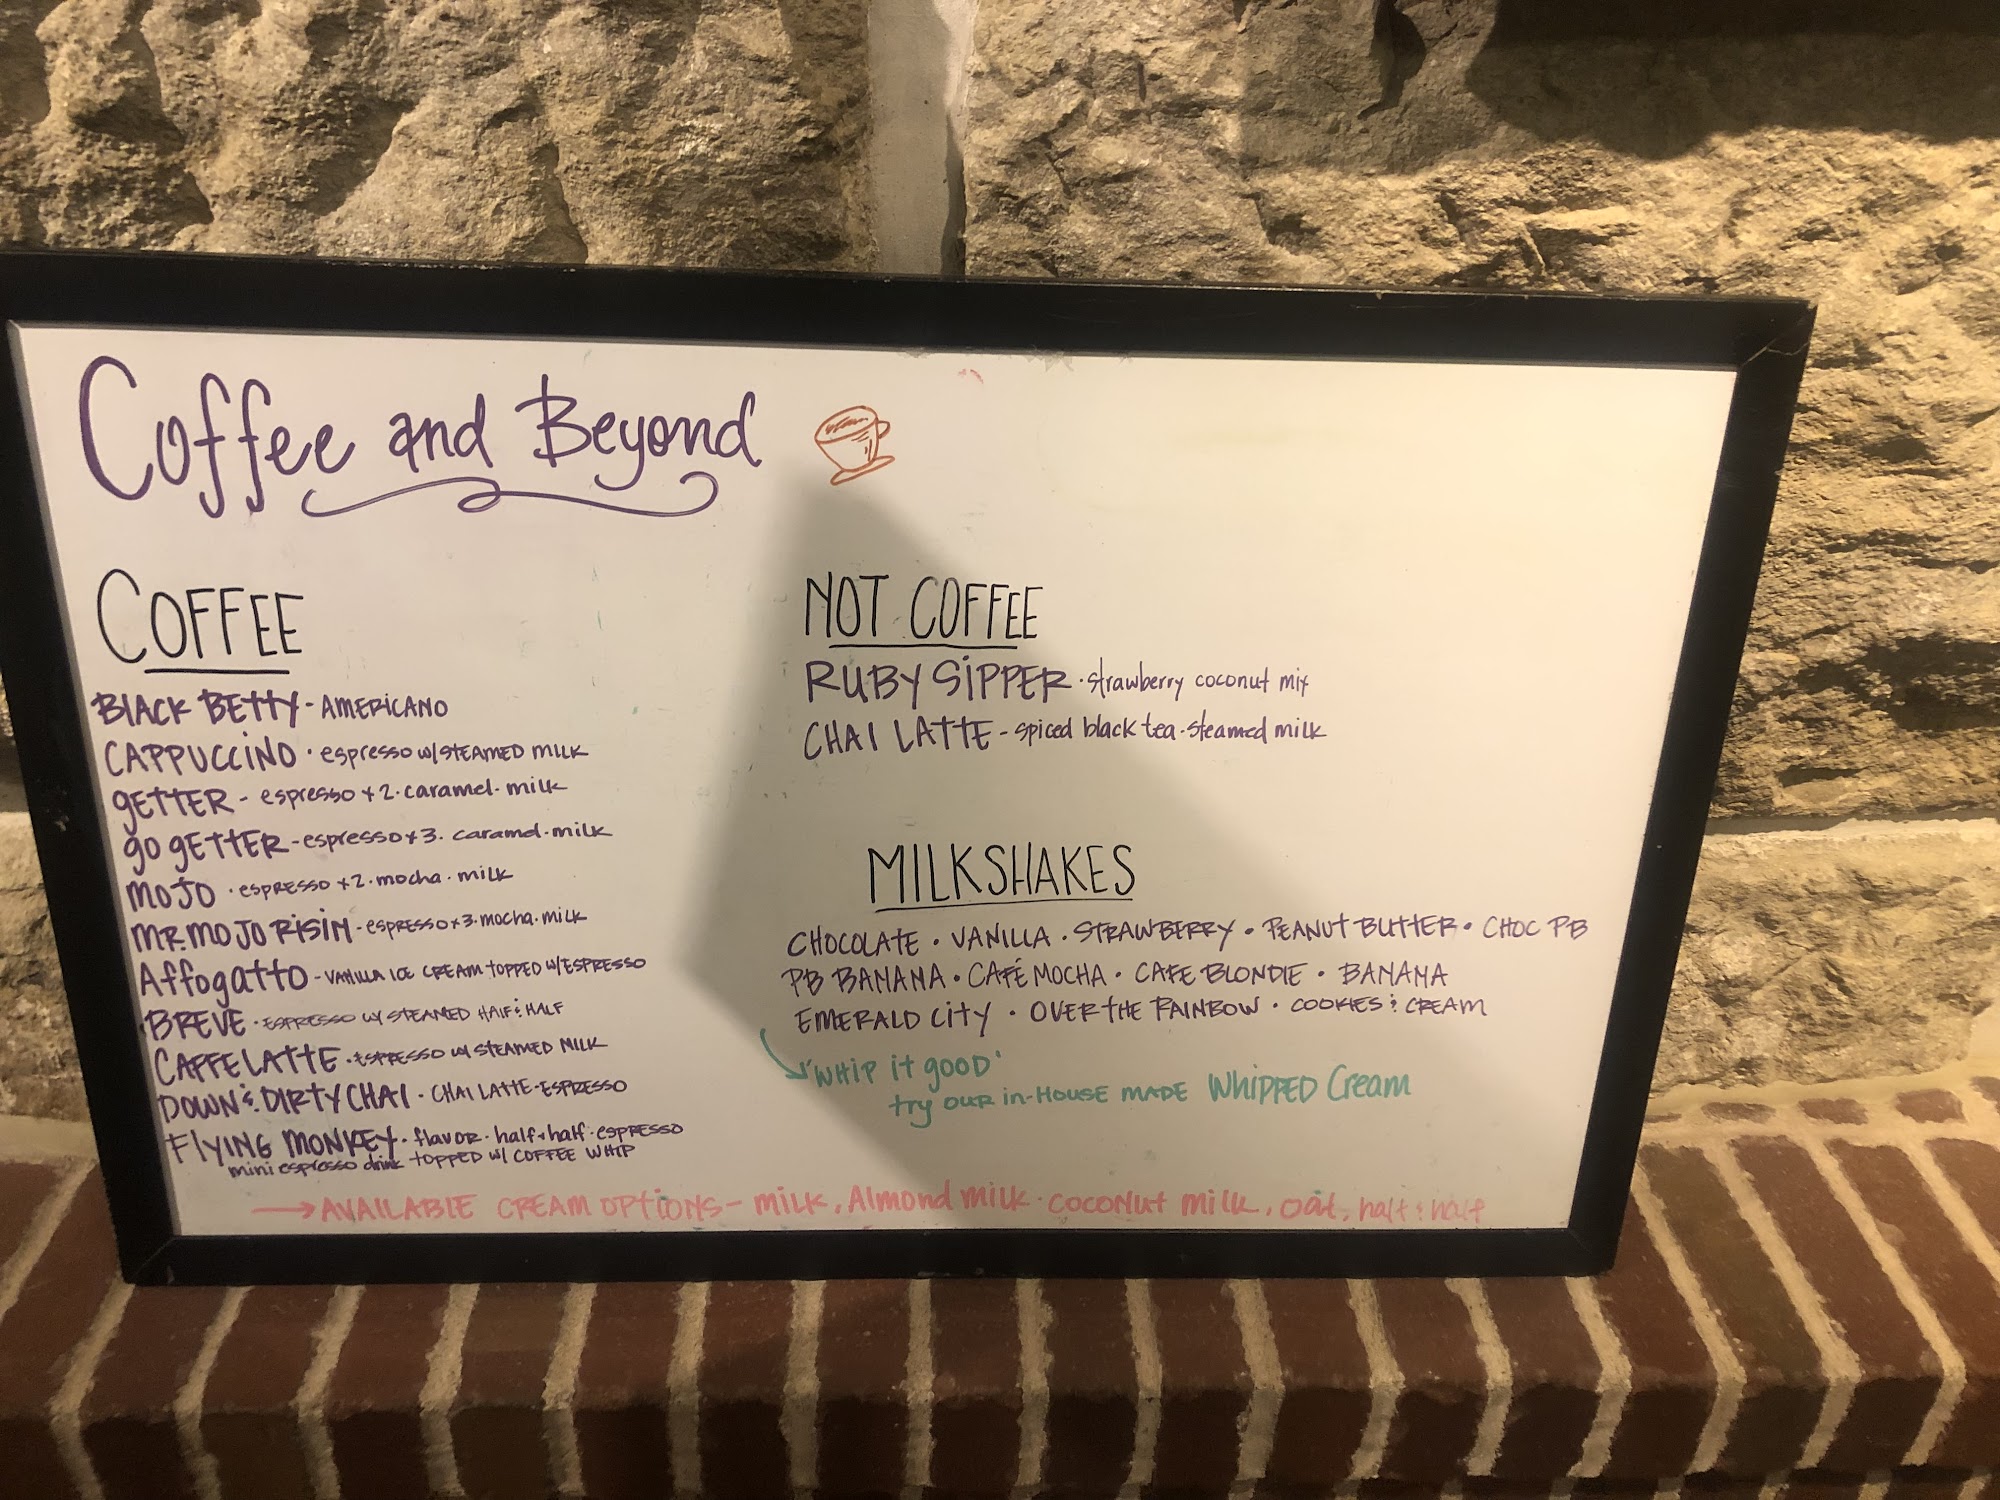 Coffee and Beyond
COFFEE
BLACK BETTY - AMERICANO
CAPPUCCINO · espresso w/ STEAMED MILK
GETTER - espresso x 2 · caramel · milk
GO GETTER - espresso x 3 · caramel · milk
MOJO · espresso x 2 · mocha · milk
MR. MOJO RISIN - espresso x 3 · mocha · milk
Affogatto - VANILLA ICE CREAM TOPPED W/ ESPRESSO
BREVE · ESPRESSO W/ STEAMED HALF & HALF
CAFFE LATTE · ESPRESSO W/ STEAMED MILK
DOWN & DIRTY CHAI · CHAI LATTE · ESPRESSO
FLYING MONKEY · flavor · half & half · ESPRESSO
mini espresso drink TOPPED W/ COFFEE WHIP
NOT COFFEE
RUBY SIPPER · strawberry coconut mix
CHAI LATTE - spiced black tea · steamed milk
MILKSHAKES
CHOCOLATE · VANILLA · STRAWBERRY · PEANUT BUTTER · CHOC PB
PB BANANA · CAFÉ MOCHA · CAFE BLONDIE · BANANA
EMERALD CITY · OVER THE RAINBOW · COOKIES & CREAM
'WHIP it good'
try OUR in-HOUSE MADE WHIPPED Cream
→ AVAILABLE CREAM OPTIONS - MILK, Almond milk · COCONUT MILK, oat, half & half